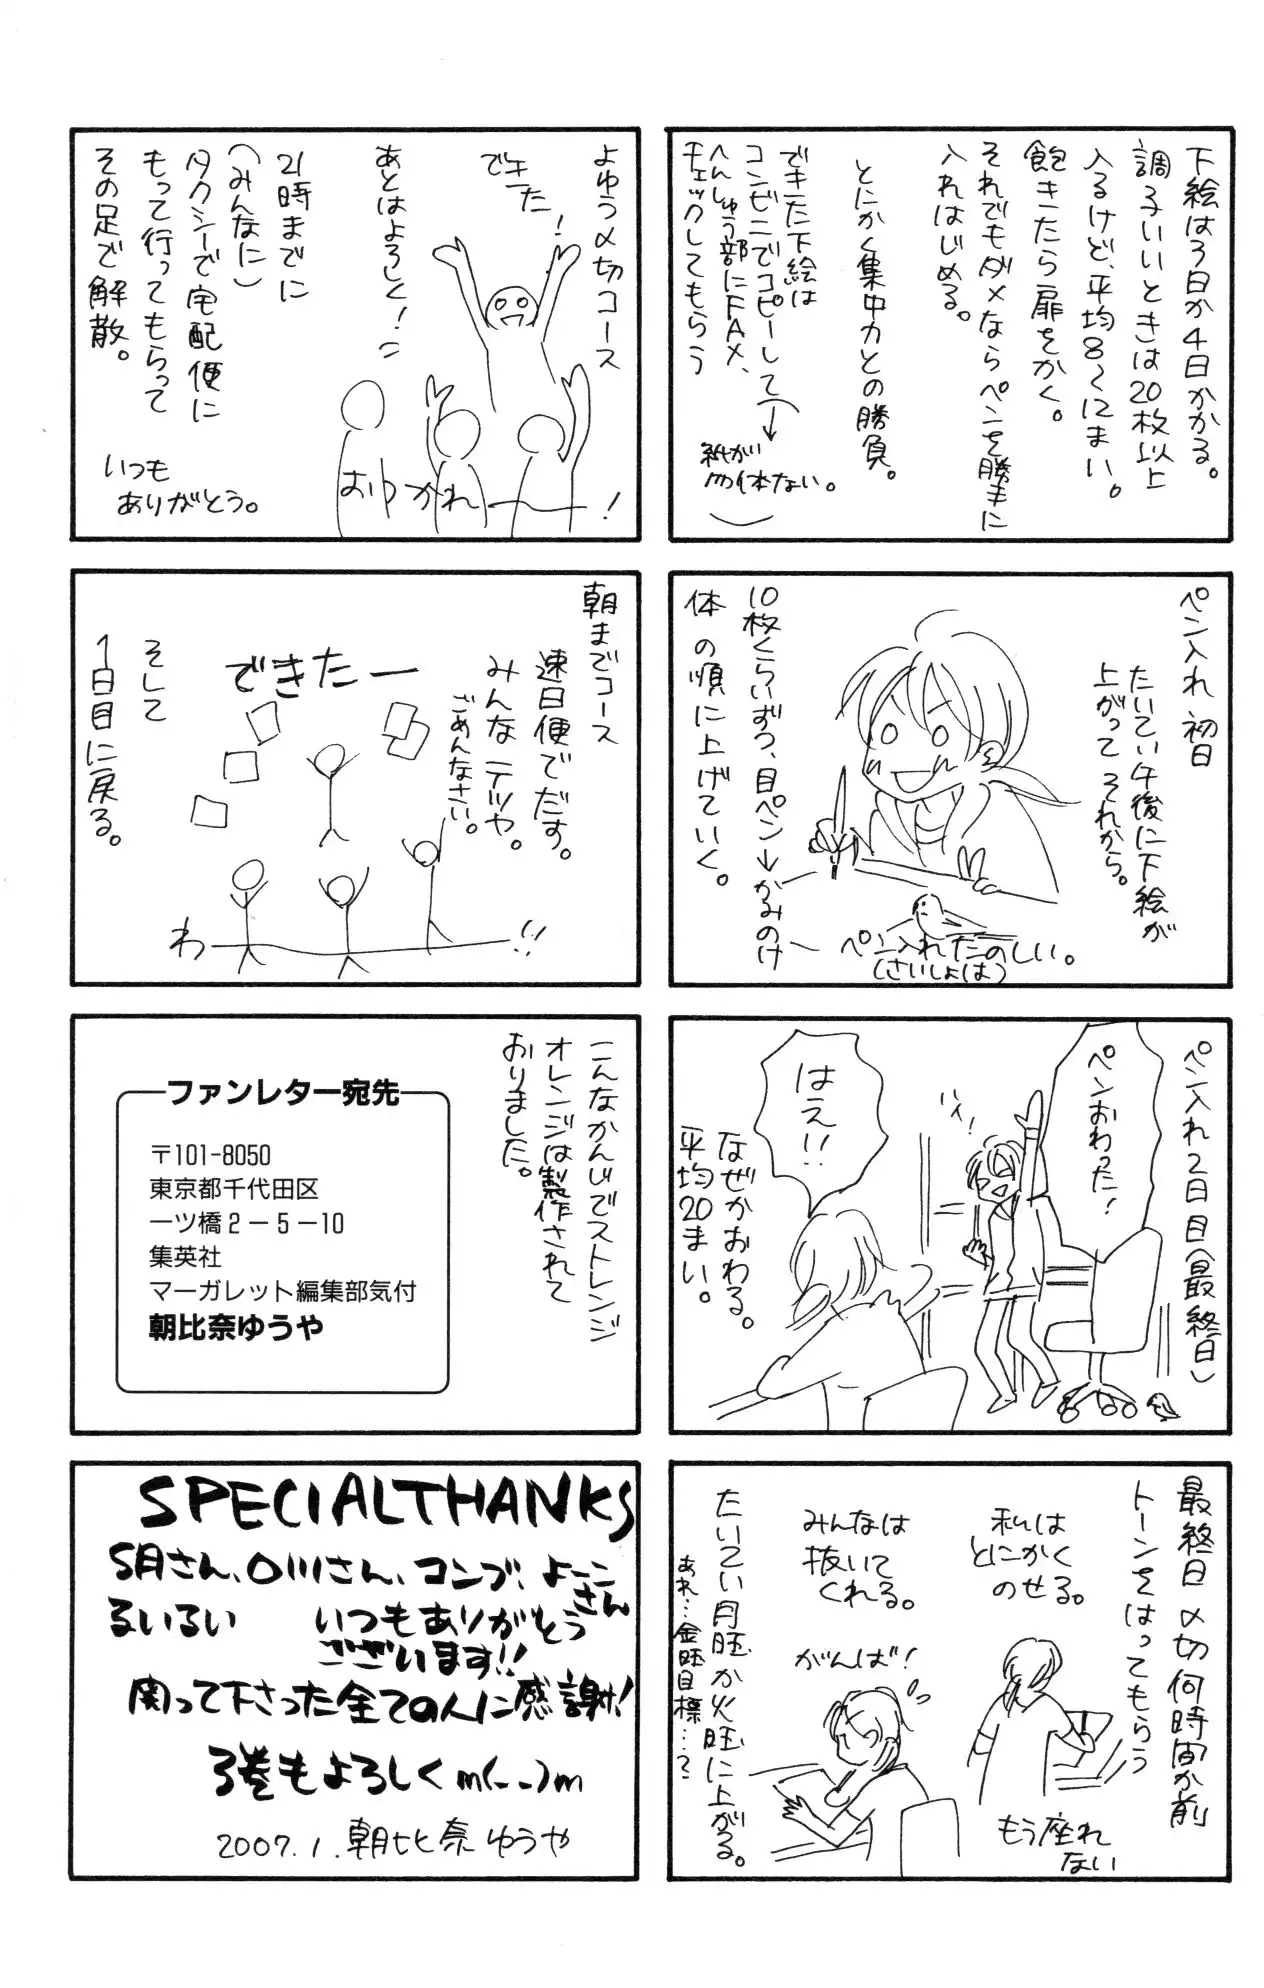 下絵は3日か4日かかる。
調子いいときは20枚以上
入るけど、平均8〜12まい。
飽きたら扉をかく。
それでもダメならペンを勝手に
入れはじめる。
とにかく集中力との勝負。
できた下絵は
コンビニでコピーして
へんしゅう部にFAX、
チェックしてもらう
紙が
勿体ない。
ペン入れ初日
たいてい午後に下絵が
上がってそれから。
10枚くらいずつ、目ペン→かみのけ
体の順に上げていく。
ペン入れたのしい。
(さいしょは)
ペン入れ2日目(最終日)
ペンおわった!
ハイ!
はえ!!
なぜかおわる。
平均20まい。
最終日〆切何時間か前
トーンをはってもらう
私は
とにかく
のせる。
みんなは
抜いて
くれる。
がんば!
もう座れ
ない
たいてい月旺か火旺に上がる。
あれ…金旺目標…?
よゆう〆切コース
できた!
あとはよろしく!
21時までに
(みんなに)
タクシーで宅配便に
もって行ってもらって
その足で解散。
おつかれー!
いつも
ありがとう。
朝までコース
速日便でだす。
みんなテツヤ。
ごめんなさい。
できたー
わー!!
そして
1日目に戻る。
こんなかんじでストレンジ
オレンジは製作されて
おりました。
ファンレター宛先
〒101-8050
東京都千代田区
一ツ橋2−5−10
集英社
マーガレット編集部気付
朝比奈ゆうや
SPECIALTHANKS
S月さん、O川さん、コンブ、よーこさん
るいるい いつもありがとう
ございます!!
関って下さった全ての人に感謝!
3巻もよろしくm(--)m
2007.1.朝比奈ゆうや